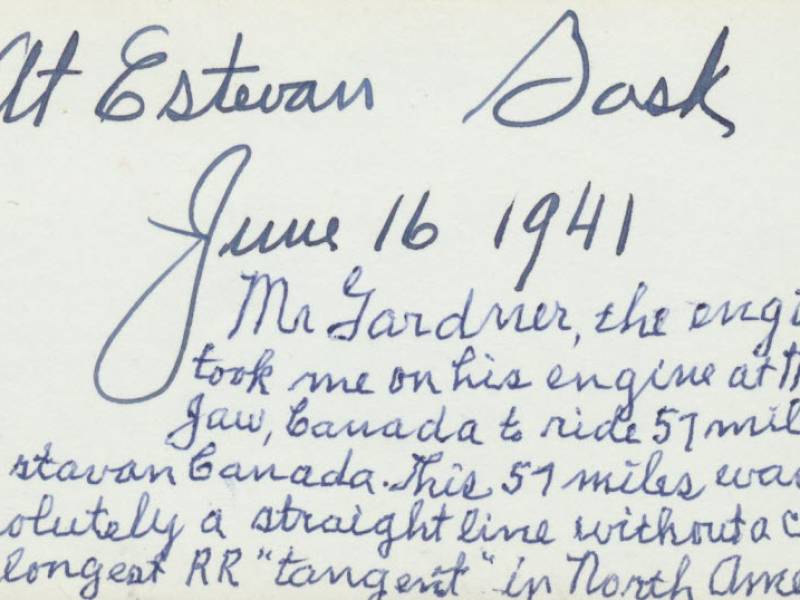 At Estevan Sask
June 16 1941
Mr Gardner, the engi
took me on his engine at M
Jaw, Canada to ride 57 mil
stavan Canada. This 57 miles was
olutely a straight line without a c
longest RR "tangent" in North Ame